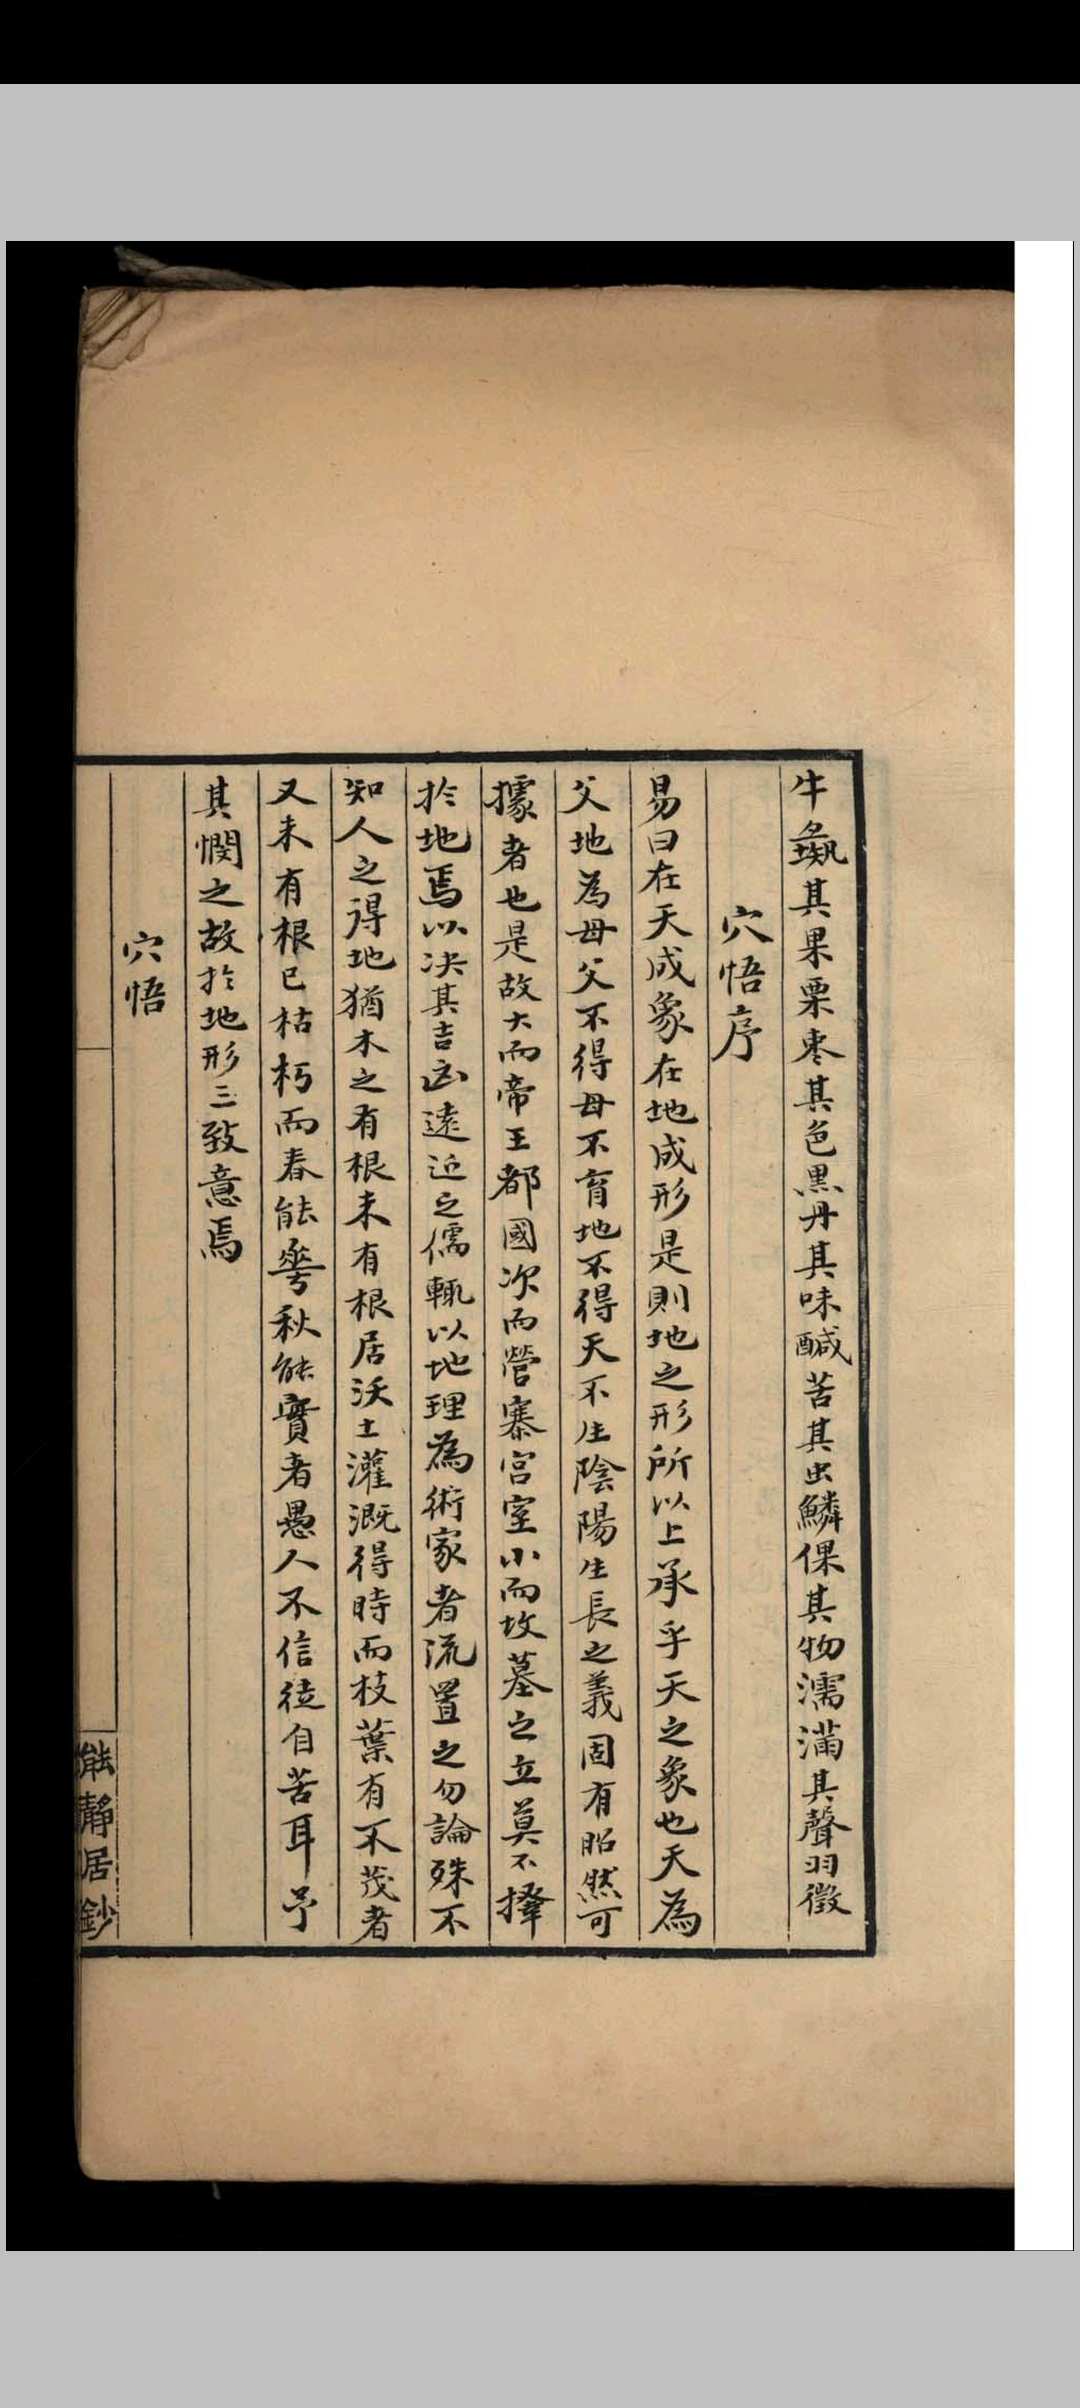 牛彘其果栗棗其色黑丹其味鹹苦其虫鱗倮其物濡滿其聲羽徵
穴悟序
易曰在天成象在地成形是則地之形所以上承乎天之象也天為
父地為母父不得母不育地不得天不生陰陽生長之義固有昭然可
據者也是故大而帝王都國次而營寨宫室小而坟墓之立莫不擇
於地焉以决其吉凶遠近之儒輒以地理為術家者流置之勿論殊不
知人之得地猶木之有根未有根居沃土灌溉得時而枝葉有不茂者
又未有根已枯朽而春能華秋能實者愚人不信徒自苦耳予
其憫之故於地形三致意焉
穴悟
能靜居鈔